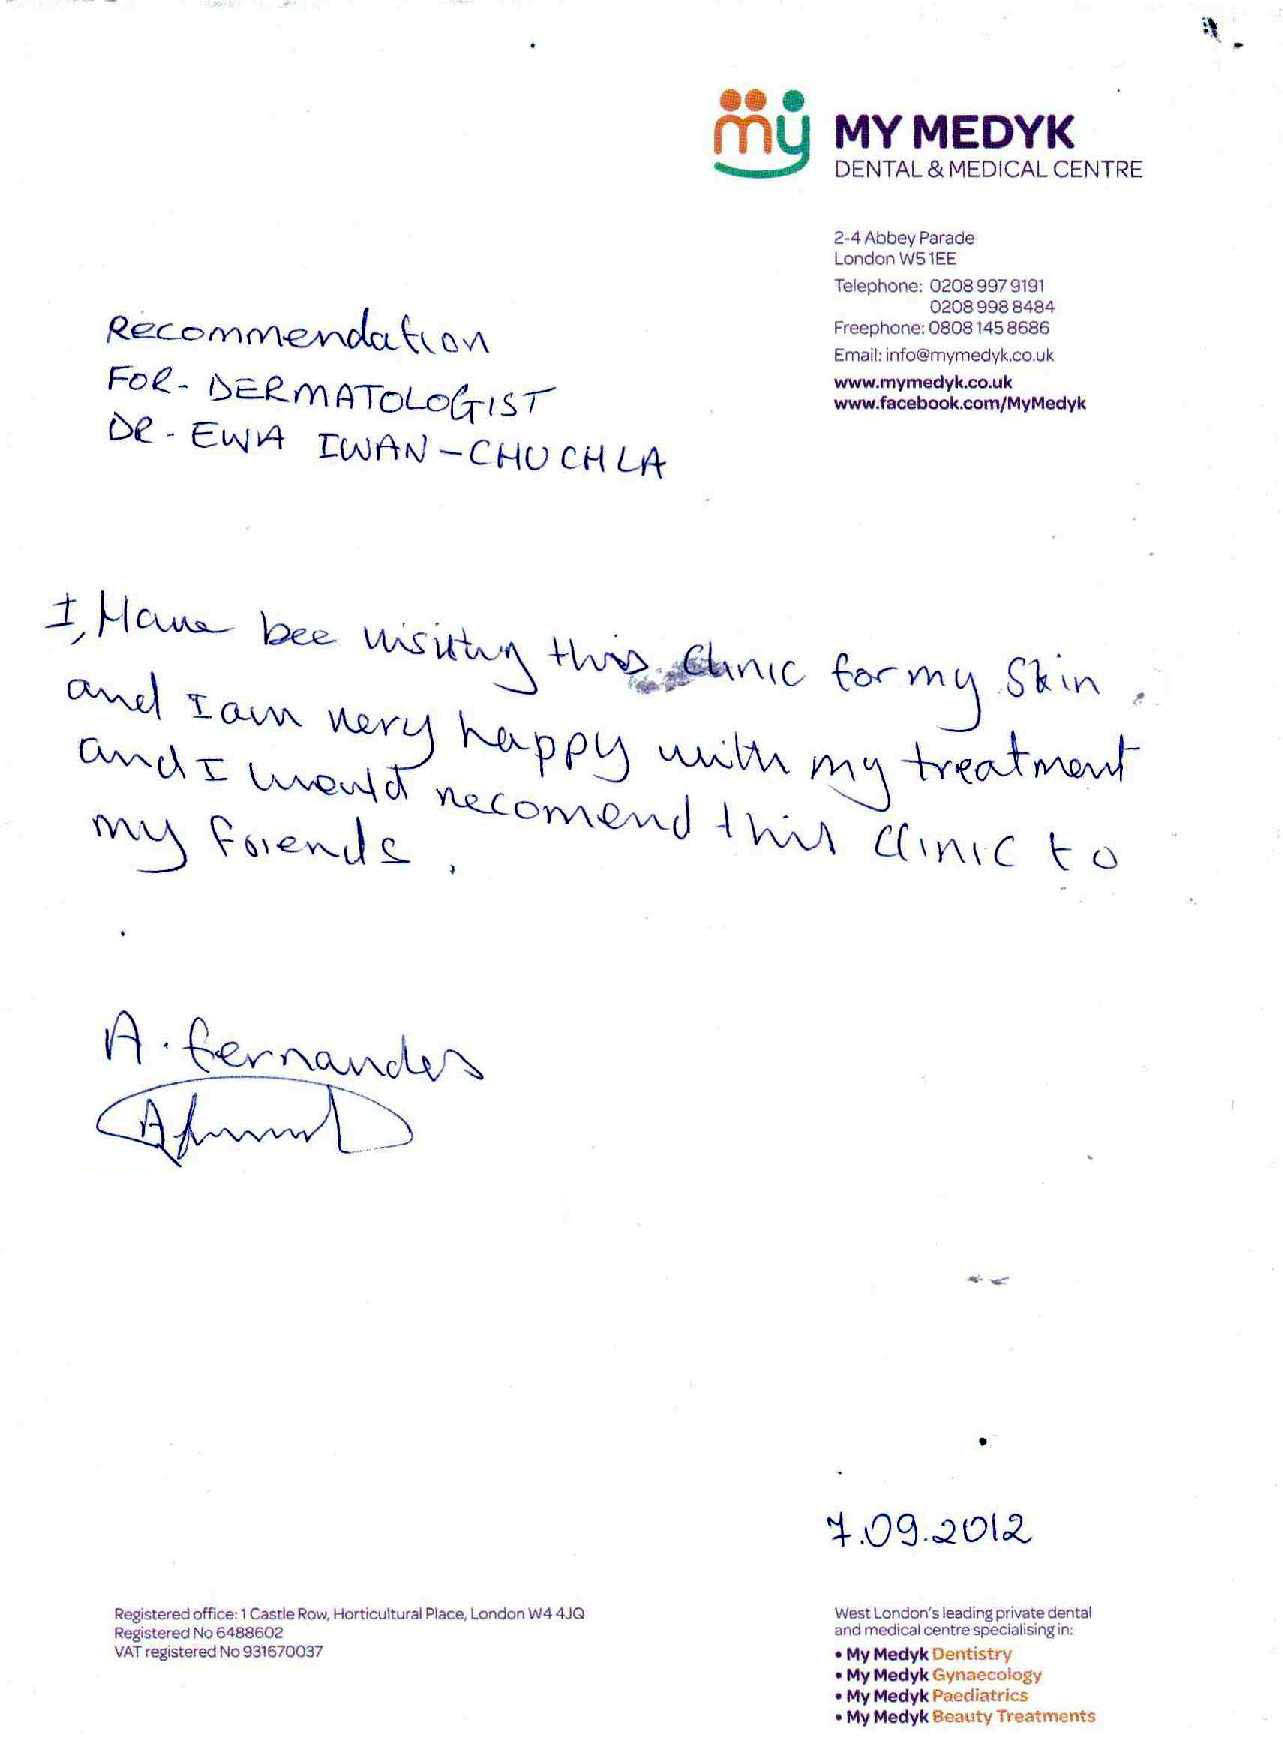 my MY MEDYK
DENTAL & MEDICAL CENTRE
2-4 Abbey Parade
London W5 1EE
Telephone: 0208 997 9191
0208 998 8484
Freephone: 0808 145 8686
Email: info@mymedyk.co.uk
www.mymedyk.co.uk
www.facebook.com/MyMedyk
Recommendation
FOR - DERMATOLOGIST
DR - EWA IWAN - CHUCHLA
I, Have bee visiting this clinic for my skin
and I am very happy with my treatment
and I would recomend this clinic to
my friends.
A. fernandes
7.09.2012
Registered office: 1 Castle Row, Horticultural Place, London W4 4JQ
Registered No 6488602
VAT registered No 931670037
West London's leading private dental
and medical centre specialising in:
• My Medyk Dentistry
• My Medyk Gynaecology
• My Medyk Paediatrics
• My Medyk Beauty Treatments